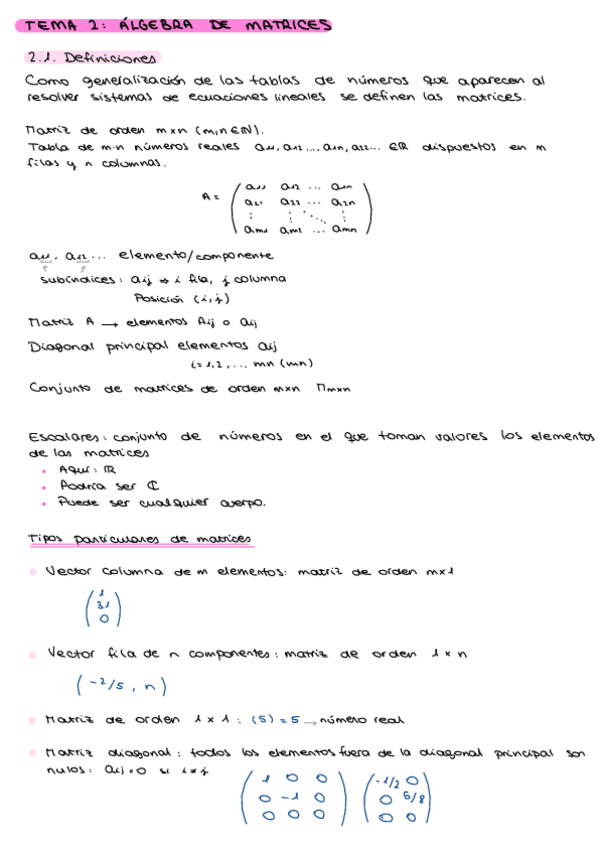 TEMA 2: ÁLGEBRA DE MATRICES
2.1. Definiciones
Como generalización de las tablas de números que aparecen al
resolver sistemas de ecuaciones lineales se definen las matrices.
Matriz de orden m×n (m,n∈ℕ).
Tabla de m·n números reales a₁₁, a₁₂ ..., a₁n, a₂₂... ∈ℝ dispuestos en m
filas y n columnas.
A = ( a₁₁ a₁₂ ... a₁n
a₂₁ a₂₂ ... a₂n
⋮ ⋮ ⋱ ⋮
am₁ am₂ ... amn )
a₁₁, a₁₂ ... elemento/componente
↑ ↑
subíndices: aij ⇒ i fila, j columna
Posición (i,j)
Matriz A → elementos Aij o aij
Diagonal principal elementos aij
i=1,2,... mn (m,n)
Conjunto de matrices de orden m×n Mm×n
Escalares: conjunto de números en el que toman valores los elementos
de las matrices
• Aquí: ℝ
• Podría ser ℂ
• Puede ser cualquier cuerpo.
Tipos particulares de matrices
• Vector columna de m elementos: matriz de orden m×1
( 1
31
0 )
• Vector fila de n componentes: matriz de orden 1×n
(-2/5, n)
• Matriz de orden 1×1: (5)=5 → número real
• Matriz diagonal: todos los elementos fuera de la diagonal principal son
nulos: aij=0 si i≠j
( 1 0 0
0 -1 0
0 0 0 )
( -1/2 0
0 5/8
0 0 )